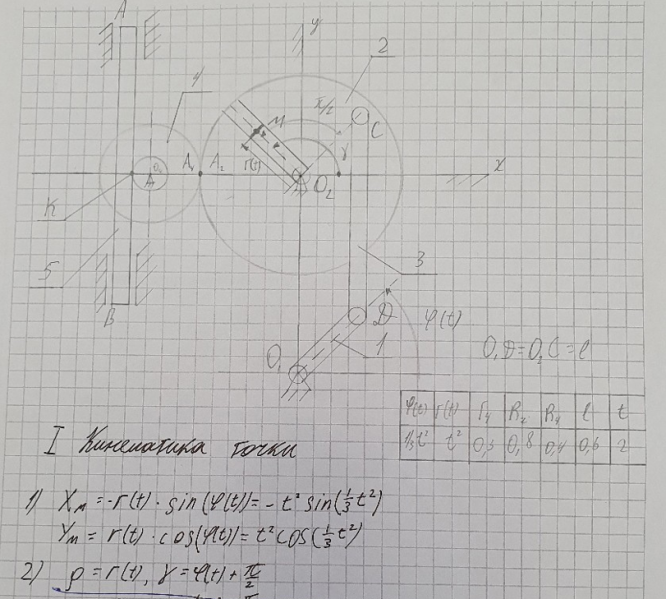 A
y
2
4
π/2
M
C
γ
r(t)
A₄ A₂
O₂
x
K
5
3
B
D
φ(t)
O₁
1
O₁D=O₂C=l
φ(t) r(t) r₄ R₂ R₄ l t
1/3t² t² 0,8 0,4 0,6 2
I Кинематика точки
1) Xₘ = -r(t) · sin(φ(t)) = - t² sin(1/3 t²)
Yₘ = r(t) · cos(φ(t)) = t² cos(1/3 t²)
2) ρ = r(t), γ = φ(t) + π/2